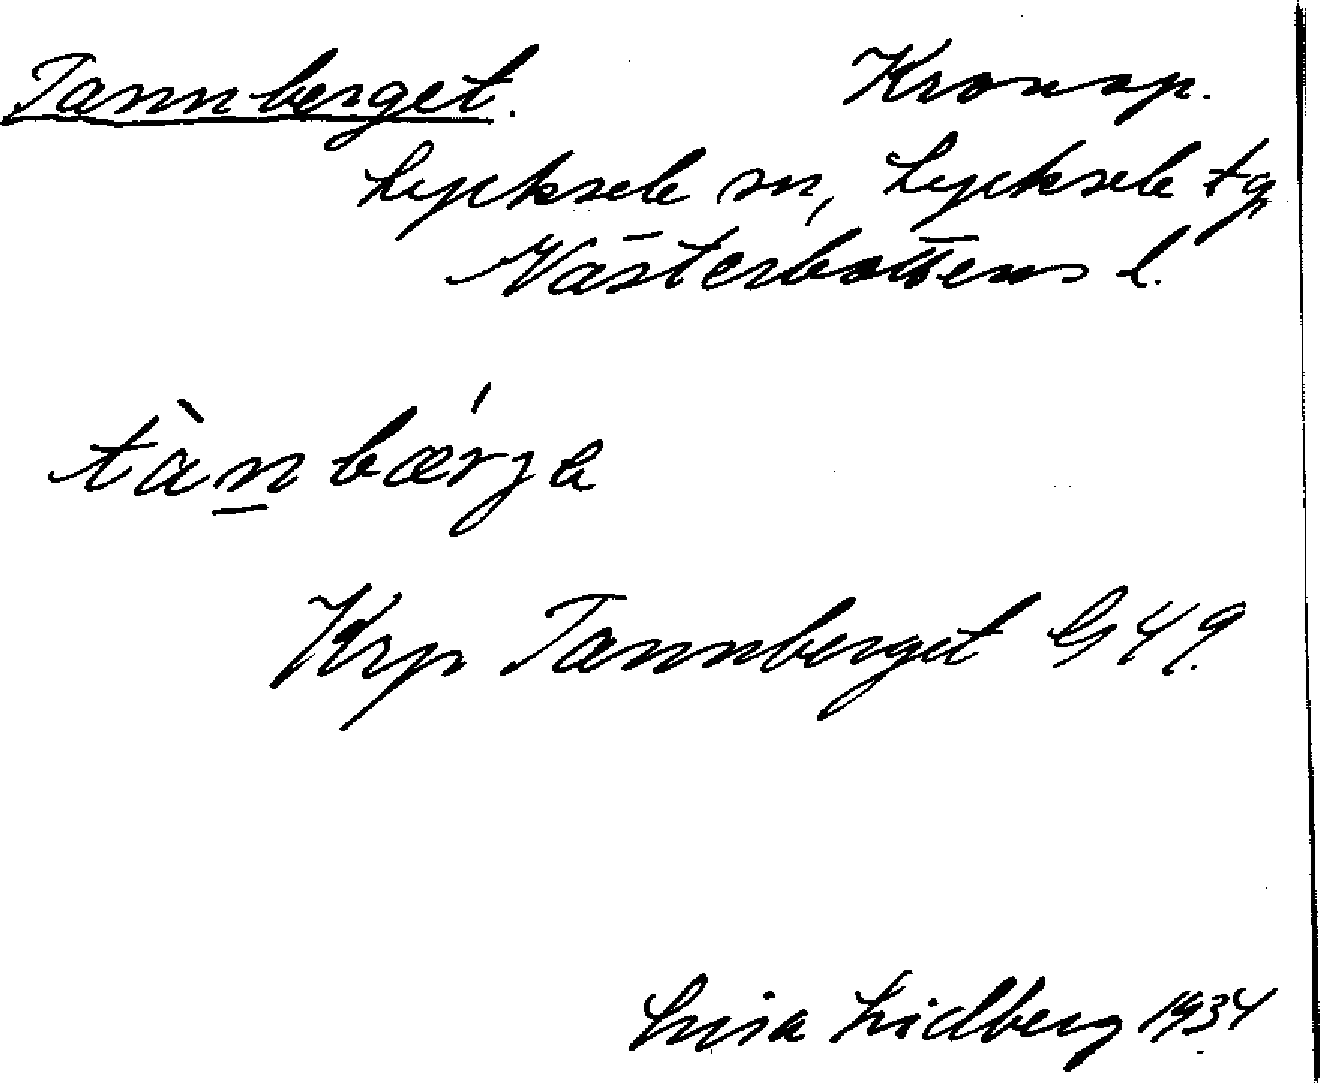 Tannberget. Kronop.
Lycksele sn, Lycksele tg
Västerbottens l.
tàn bǽrjα
Krp Tannberget G 49.
Lisa Lidberg 1934